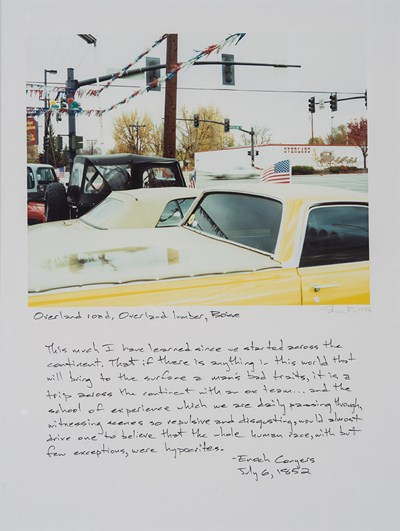 OVERLAND
Overland road, Overland lumber, Boise
This much I have learned since we started across the
continent. That if there is anything in this world that
will bring to the surface a man's bad traits, it is a
trip across the continent with an ox team... and the
school of experience which we are daily passing through,
witnessing scenes so repulsive and disgusting, would almost
drive one to believe that the whole human race, with but
few exceptions, were hypocrites.
-Enoch Conyers
July 6, 1852